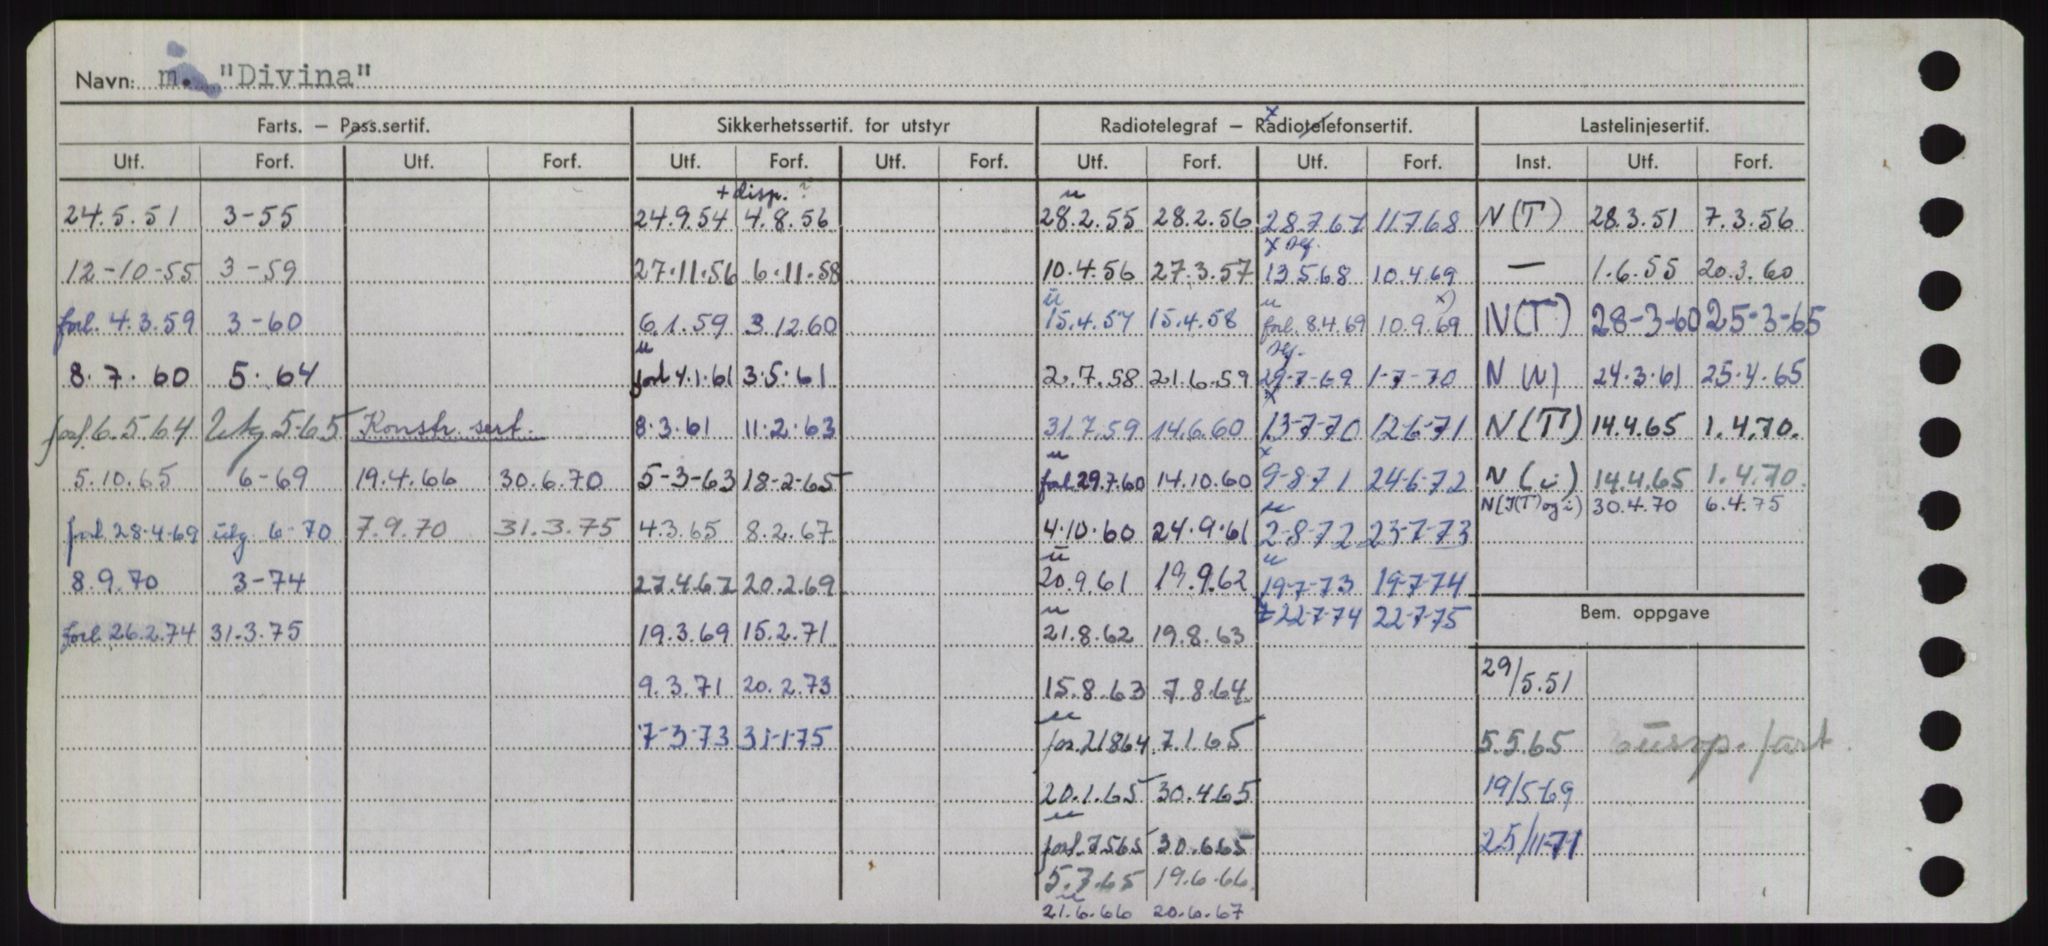 Navn: m. "Divina"
Farts. — Pass.sertif. Sikkerhetssertif. for utstyr Radiotelegraf — Radiotelefonsertif. Lastelinjesertif.
Utf. Forf. Utf. Forf. Utf. Forf. Utf. Forf. Utf. Forf. Utf. Forf. Inst. Utf. Forf.
+ disp. ? u
24.5.51 3-55 24.9.54 4.8.56 28.2.55 28.2.56 28.7.67 11.7.68 N(T) 28.3.51 7.3.56
x
12-10-55 3-59 27.11.56 6.11.58 10.4.56 27.3.57 13.5.68 10.4.69 — 1.6.55 20.3.60
u u x)
forl. 4.3.59 3-60 6.1.59 3.12.60 15.4.57 15.4.58 forl. 8.4.69 10.9.69 N(T) 28-3-60 25-3-65
u
8.7.60 5.64 forl 4.1.61 3.5.61 2.7.58 21.6.59 29-7-69 1-7-70 N(u) 24.3.61 25.4.65
x
forl 6.5.64 Utg 5-65 Konstr. sert. 8.3.61 11.2.63 31.7.59 14.6.60 13-7-70 12-6-71 N(T) 14.4.65 1.4.70.
u x
5.10.65 6-69 19.4.66 30.6.70 5-3-63 18-2-65 forl 29.7.60 14.10.60 9-8-71 24-6-72 N(i) 14.4.65 1.4.70.
u N(J(T) og i) 30.4.70 6.4.75
forl 28.4.69 utg 6-70 7.9.70 31.3.75 4.3.65 8.2.67 4.10.60 24.9.61 2-8-72 23-7-73
u u
8.9.70 3-74 27.4.67 20.2.69 20.9.61 19.9.62 19-7-73 19-7-74
u 22-7-74 22-7-75 Bem. oppgave
forl. 26.2.74 31.3.75 19.3.69 15.2.71 21.8.62 19.8.63
9.3.71 20.2.73 15.8.63 7.8.64 29/5.51
u
7-3-73 31-1-75 for. 21864 7.1.65 5.5.65 europ. fart.
20.1.65 30.4.65 19/5-69
u
forl. 7565 30.6.65 25/11-71
5.7.65 19.6.66.
u
21.6.66 20.6.67